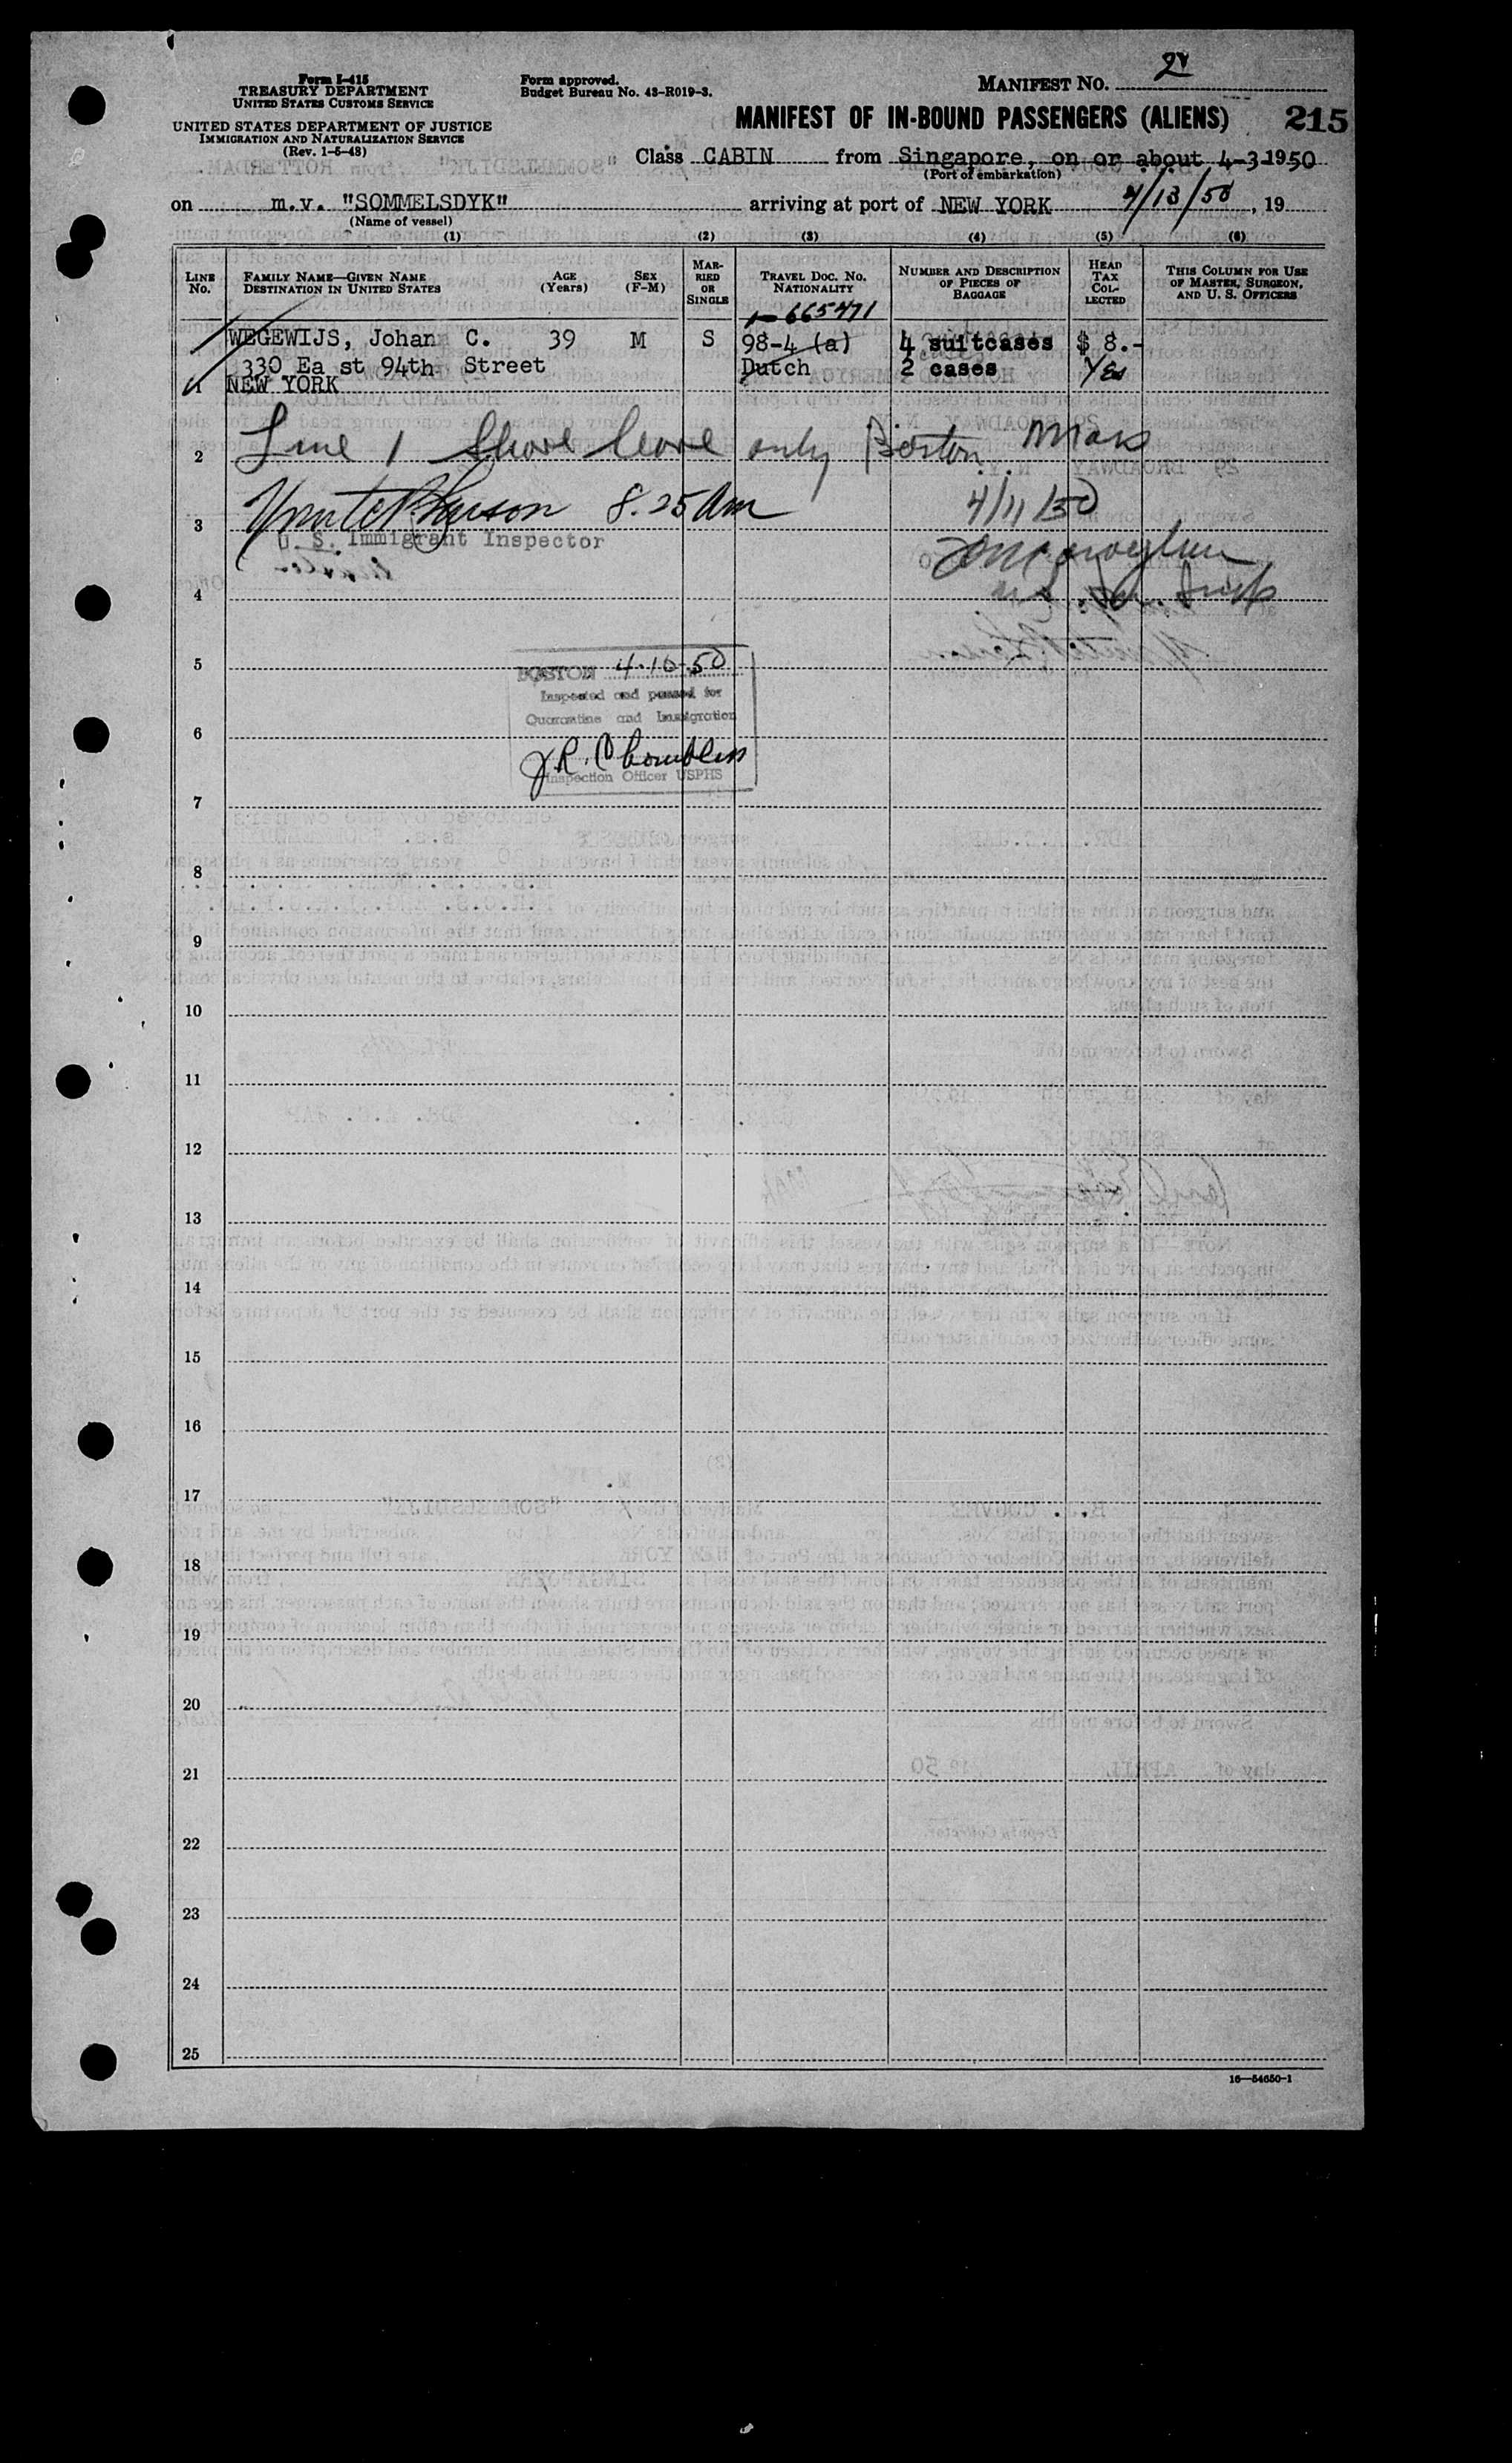 Form I-415
TREASURY DEPARTMENT
UNITED STATES CUSTOMS SERVICE
UNITED STATES DEPARTMENT OF JUSTICE
IMMIGRATION AND NATURALIZATION SERVICE
(Rev. 1-5-48)
Form approved.
Budget Bureau No. 43-R019-3.
MANIFEST NO.
MANIFEST OF IN-BOUND PASSENGERS (ALIENS) 215
Class CABIN from Singapore, on or about 4-3-1950
(Port of embarkation)
on m.v. "SOMMELSDYK" arriving at port of NEW YORK 4/13/50, 19
(Name of vessel)
(1) (2) (3) (4) (5) (6)
LINE No. FAMILY NAME—GIVEN NAME DESTINATION IN UNITED STATES AGE (Years) SEX (F-M) MARRIED OR SINGLE TRAVEL DOC. NO. NATIONALITY NUMBER AND DESCRIPTION OF PIECES OF BAGGAGE HEAD TAX COLLECTED THIS COLUMN FOR USE OF MASTER, SURGEON, AND U. S. OFFICERS
665471
WEGEWIJS, Johan C. 39 M S 98-4 (a) 4 suitcases $ 8.-
330 Ea st 94th Street Dutch 2 cases Yes
1 NEW YORK
2 Line 1 Shore leave only Boston Mass
3 8.25 Am 4/11/50
U. S. Immigrant Inspector
4
5 BOSTON 4-10-50
Inspected and passed for
Quarantine and Immigration
6
J.R. Chambless
Inspection Officer USPHS
7
8
9
10
11
12
13
14
15
16
17
18
19
20
21
22
23
24
25
16—54650-1